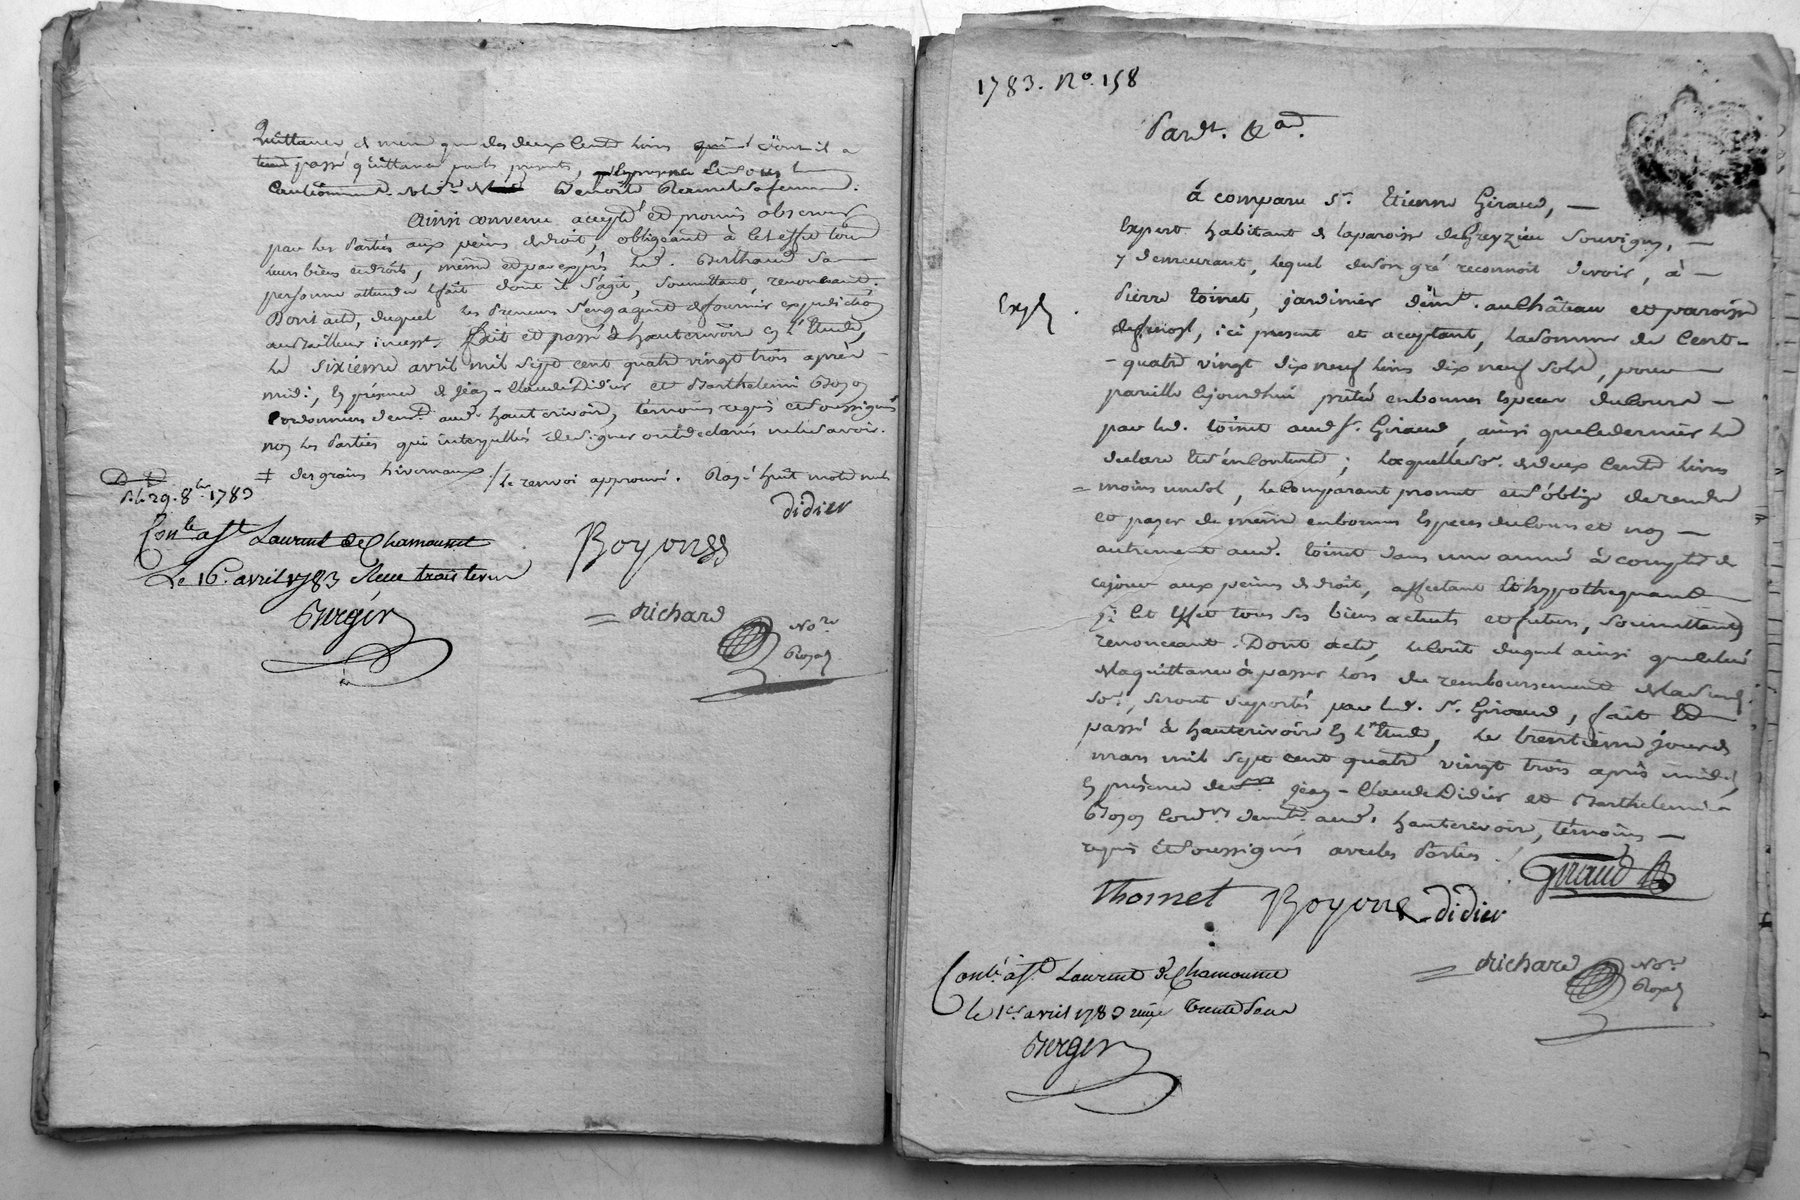 quittance et meme que des deux cents livres dont il a
passé quittance par les présentes,
Benoite sa femme.
Ainsi convenu accepté et promis observer
par les Parties aux peines de droit, obligeant à cet effet tous
leurs biens et droits, même et par exprès led. Berthaud sa
personne attendu le fait dont il s'agit, soumettant, renonceant.
Dont acte, duquel les Preneurs s'engagent de fournir expédition
au Bailleur incess.t fait et passé à hauterivoire en l'Etude,
Le sixième avril mil sept cent quatre vingt trois après
midi, en présence de Jean-Claude Didier et Barthelemi Boyon
Cordonniers dem.t aud. hauterivoire, témoins requis et soussignés
non les Parties qui interpellées de signer ont déclaré ne le savoir.
‡ des grains hivernaux / le renvoi approuvé. Rayé huit mots nuls
D. E.
le 29. 8bre. 1783
didier
Con.lé à St. Laurent de Chamousset
Boyon
Le 16. avril 1783 Reçu trois livres
Berger
= Richard No.re
Royal
1783. No. 158
Pard.t &a.d
à comparu Sr. Etienne Giraud, —
Expert habitant de la paroisse de Grezieu Souvigny, —
y demeurant, lequel de son gré reconnoît devoir, à —
Exp.é
Pierre toinet, jardinier dem.t au Château et paroisse
de, ici présent et acceptant, la somme de Cent-
- quatre vingt dix neuf livres dix neuf sols, pour
pareille cejourdhui prêtée en bonnes Especes du Cours —
par led. toinet aud. Sr. Giraud, ainsi que le dernier le
declare et s'en contente; laquelle so.e de deux Cents livres
= moins un sol, le comparant promet et s'oblige de rendre
et payer de même en bonnes Especes du Cours et non —
autrement aud. toinet dans une année à compter de
cejour aux peines de droit, affectant et hypothéquant
à cet effet tous ses biens actuels et futurs, soumettant
renonceant. Dont acte, le coût duquel ainsi que celui
de la quittance à passer lors du remboursement de lad.
so.e, seront suportés par led. Sr. Giraud, fait et
passé à hauterivoire en l'Etude, le trentieme jour de
mars mil sept cent quatre vingt trois après midi,
en présence de Jean-Claude Didier et Barthelemi
Boyon Cord.rs dem.t aud. hauterivoire, témoins —
requis et soussignés avec les Parties.
Giraud
thoinet Boyon didier
Con.lé à St. Laurent de Chamousset
= Richard No.re
Royal
le 1er. avril 1783 reçu trente sous
Berger